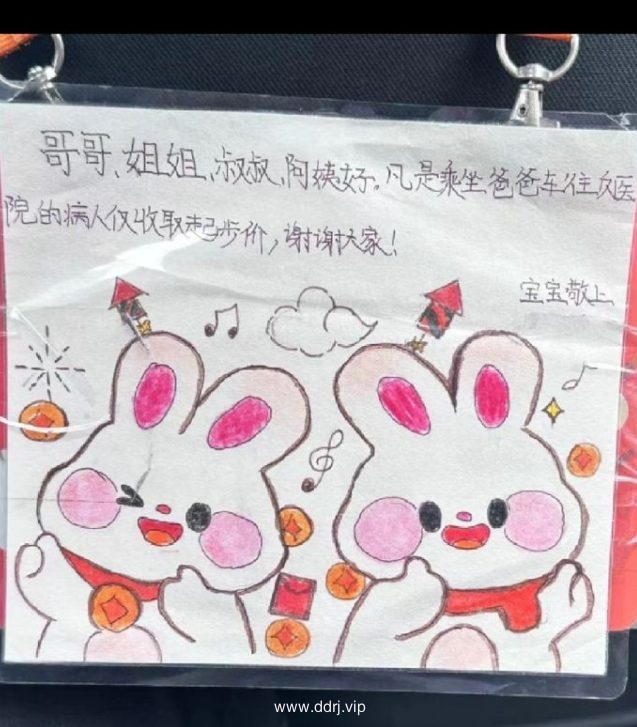 哥哥、姐姐、叔叔、阿姨好。凡是乘坐爸爸车往返医
院的病人仅收取起步价，谢谢大家！
宝宝敬上
www.ddrj.vip